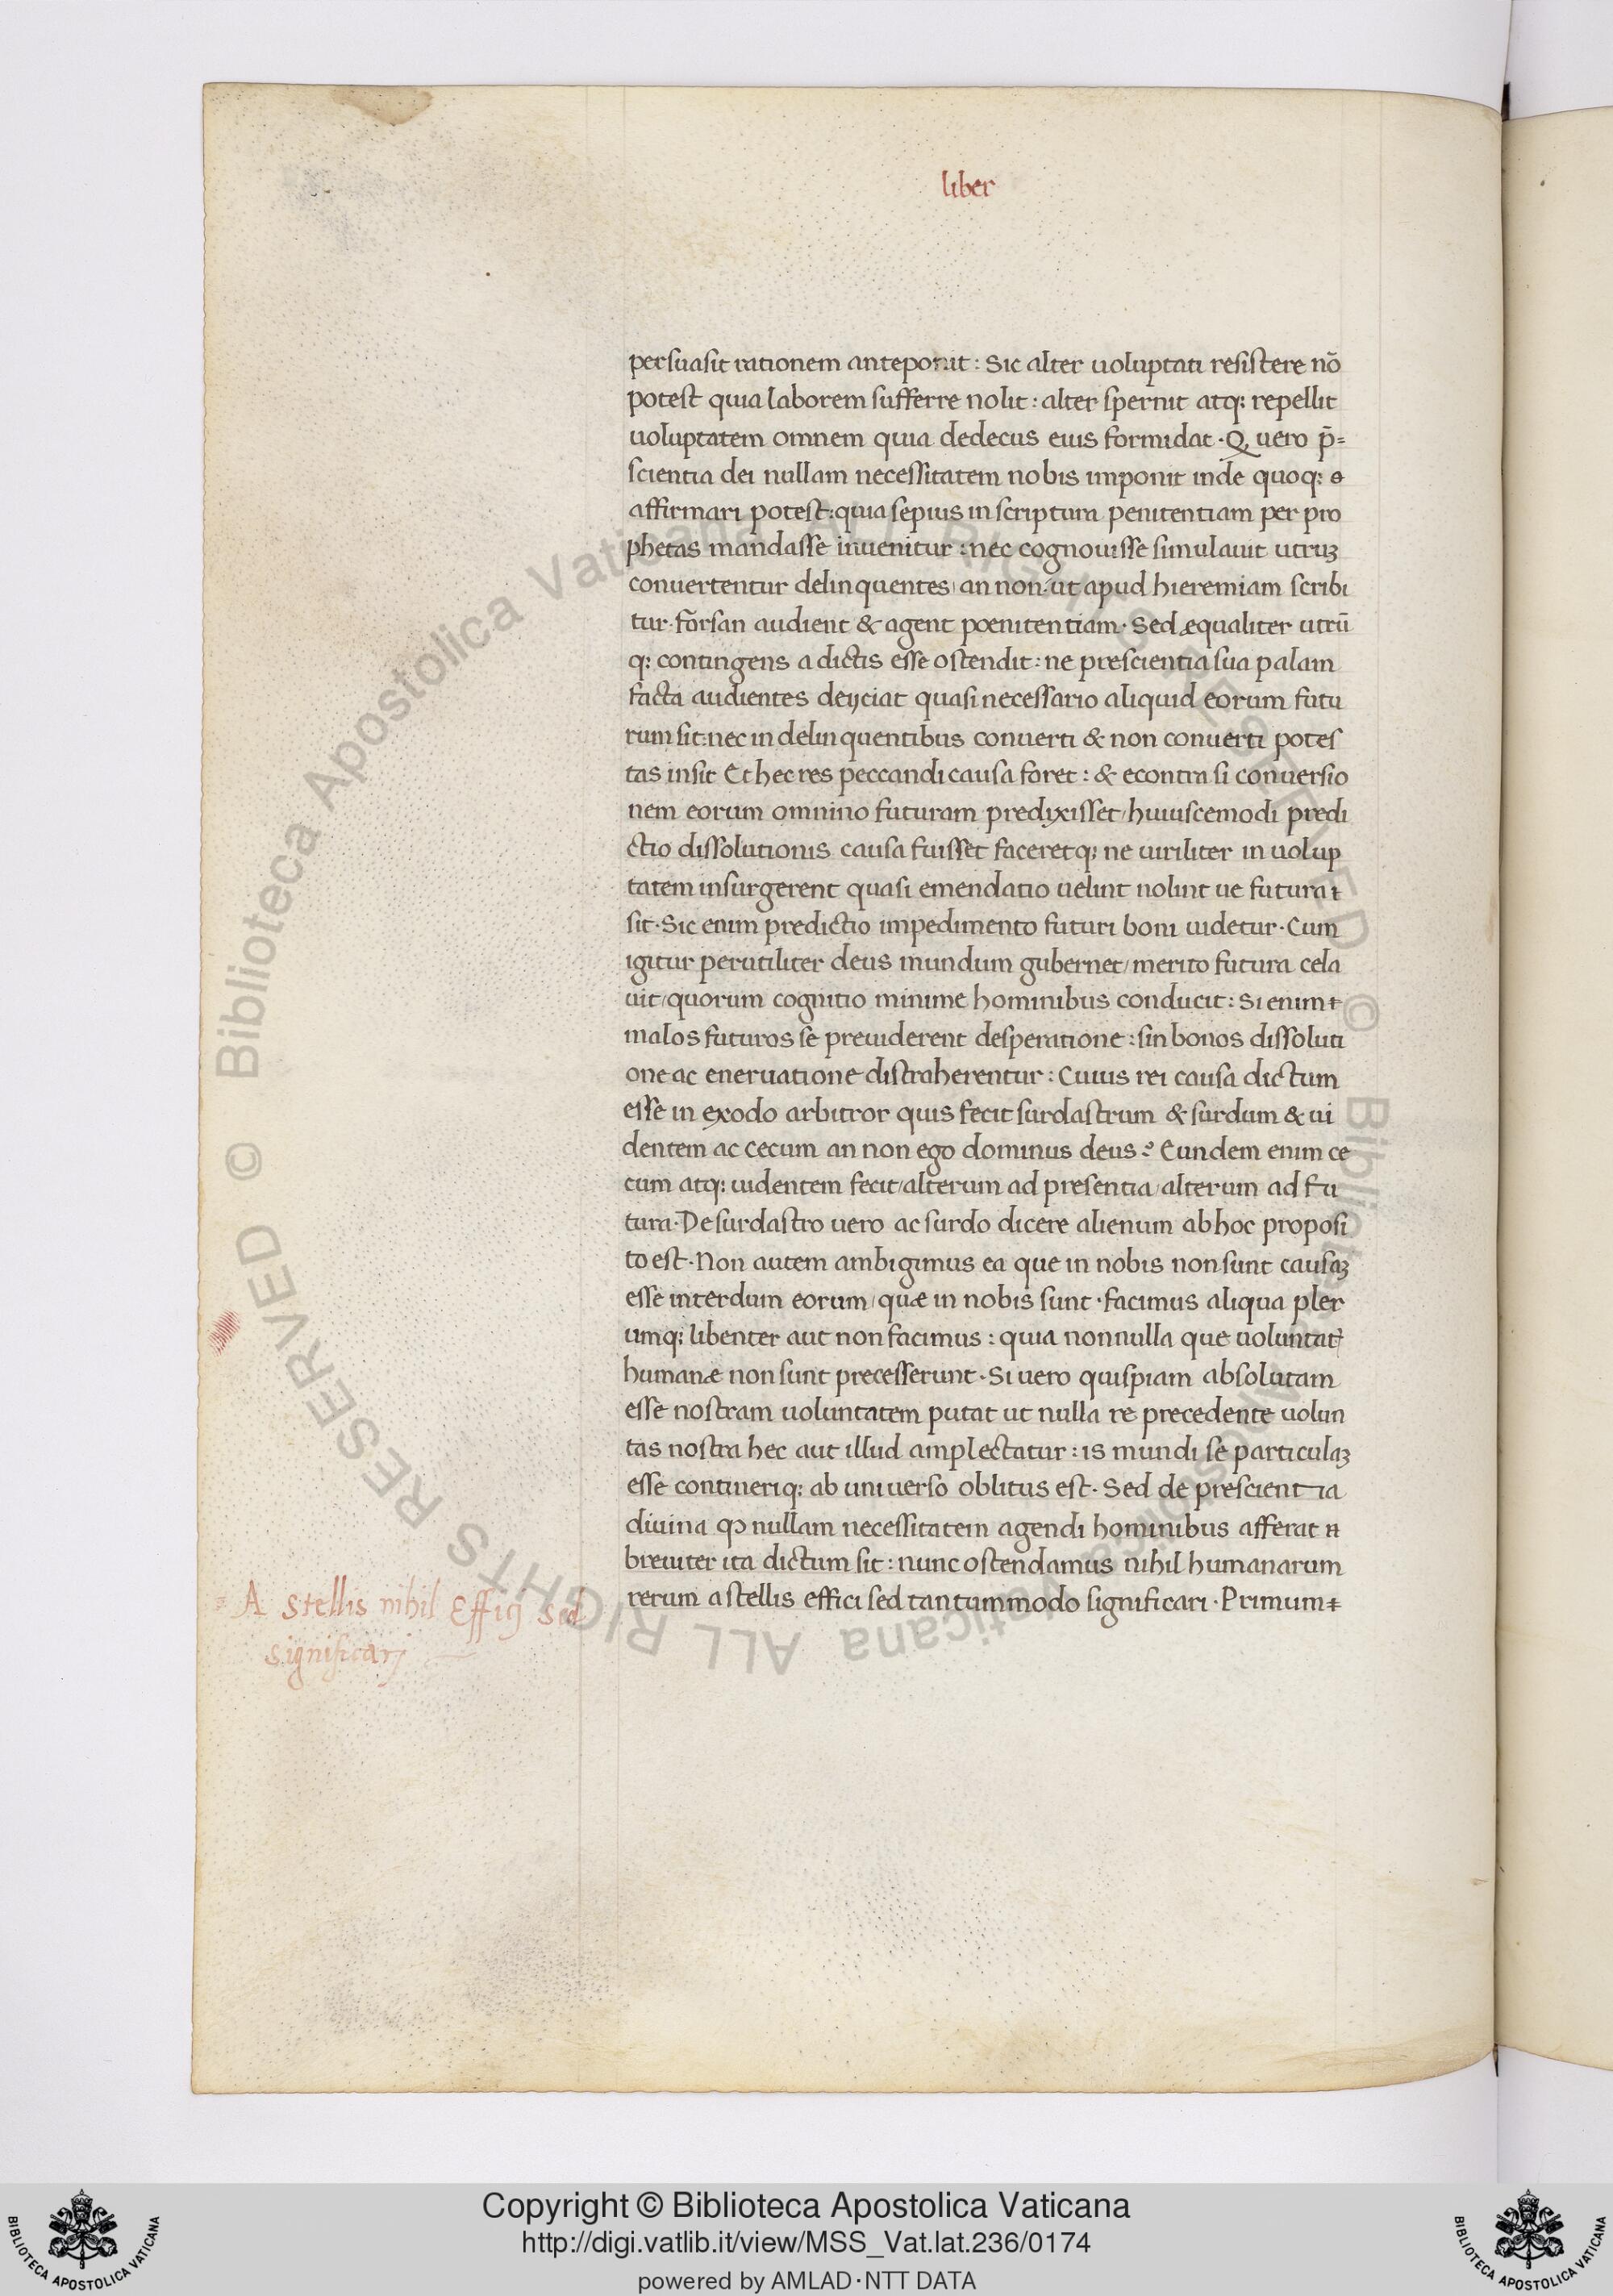 liber
persuasit rationem anteponit : Sic alter uoluptati resistere nō
potest quia laborem sufferre nolit : alter spernit atq; repellit
uoluptatem omnem quia dedecus eius formidat · Q, uero p̄=
scientia dei nullam necessitatem nobis imponit inde quoq;
affirmari potest : quia sepius in scriptura penitentiam per pro
phetas mandasse inuenitur : nec cognouisse simulauit utruꝫ
conuertentur delinquentes / an non · ut apud hieremiam scribi
tur · forsan audient & agent poenitentiam · Sed æqualiter utrū
q; contingens a dictis esse ostendit : ne prescientia sua palam
facta audientes deijciat quasi necessario aliquid eorum futu
rum sit : nec in delinquentibus conuerti & non conuerti potes
tas insit Et hec res peccandi causa foret : & econtra si conuersio
nem eorum omnino futuram predixisset / huiuscemodi predi
ctio dissolutionis causa fuisset faceretq; ne uiriliter in uolup
tatem insurgerent quasi emendatio uelint nolint ue futura
sit · Sic enim predictio impedimento futuri boni uidetur · Cum
igitur perutiliter deus mundum gubernet / merito futura cela
uit / quorum cognitio minime hominibus conducit : Si enim
malos futuros se preuiderent desperatione : sin bonos dissoluti
one ac eneruatione distraherentur : Cuius rei causa dictum
esse in exodo arbitror quis fecit surdastrum & surdum & ui
dentem ac cecum an non ego dominus deus ? Eundem enim ce
cum atq; uidentem fecit / alterum ad presentia / alterum ad fu
tura · De surdastro uero ac surdo dicere alienum ab hoc proposi
to est · Non autem ambigimus ea que in nobis non sunt causaꝫ
esse interdum eorum / quæ in nobis sunt · facimus aliqua pler
umq; libenter aut non facimus : quia nonnulla que uoluntatꝭ
humanæ non sunt precesserunt · Si uero quispiam absolutam
esse nostram uoluntatem putat ut nulla re precedente uolun
tas nostra hec aut illud amplectatur : is mundi se particulaꝫ
esse contineriq; ab uniuerso oblitus est · Sed de prescientia
diuina ꝙ nullam necessitatem agendi hominibus afferat
breuiter ita dictum sit : nunc ostendamus nihil humanarum
rerum a stellis effici sed tantummodo significari · Primum
A stellis nihil Effiij sed
significarj
© Biblioteca Apostolica Vaticana ALL RIGHTS RESERVED © Biblioteca Apostolica Vaticana ALL RIGHTS RESERVED
Copyright © Biblioteca Apostolica Vaticana
http://digi.vatlib.it/view/MSS_Vat.lat.236/0174
powered by AMLAD·NTT DATA
BIBLIOTECA APOSTOLICA VATICANA
BIBLIOTECA APOSTOLICA VATICANA